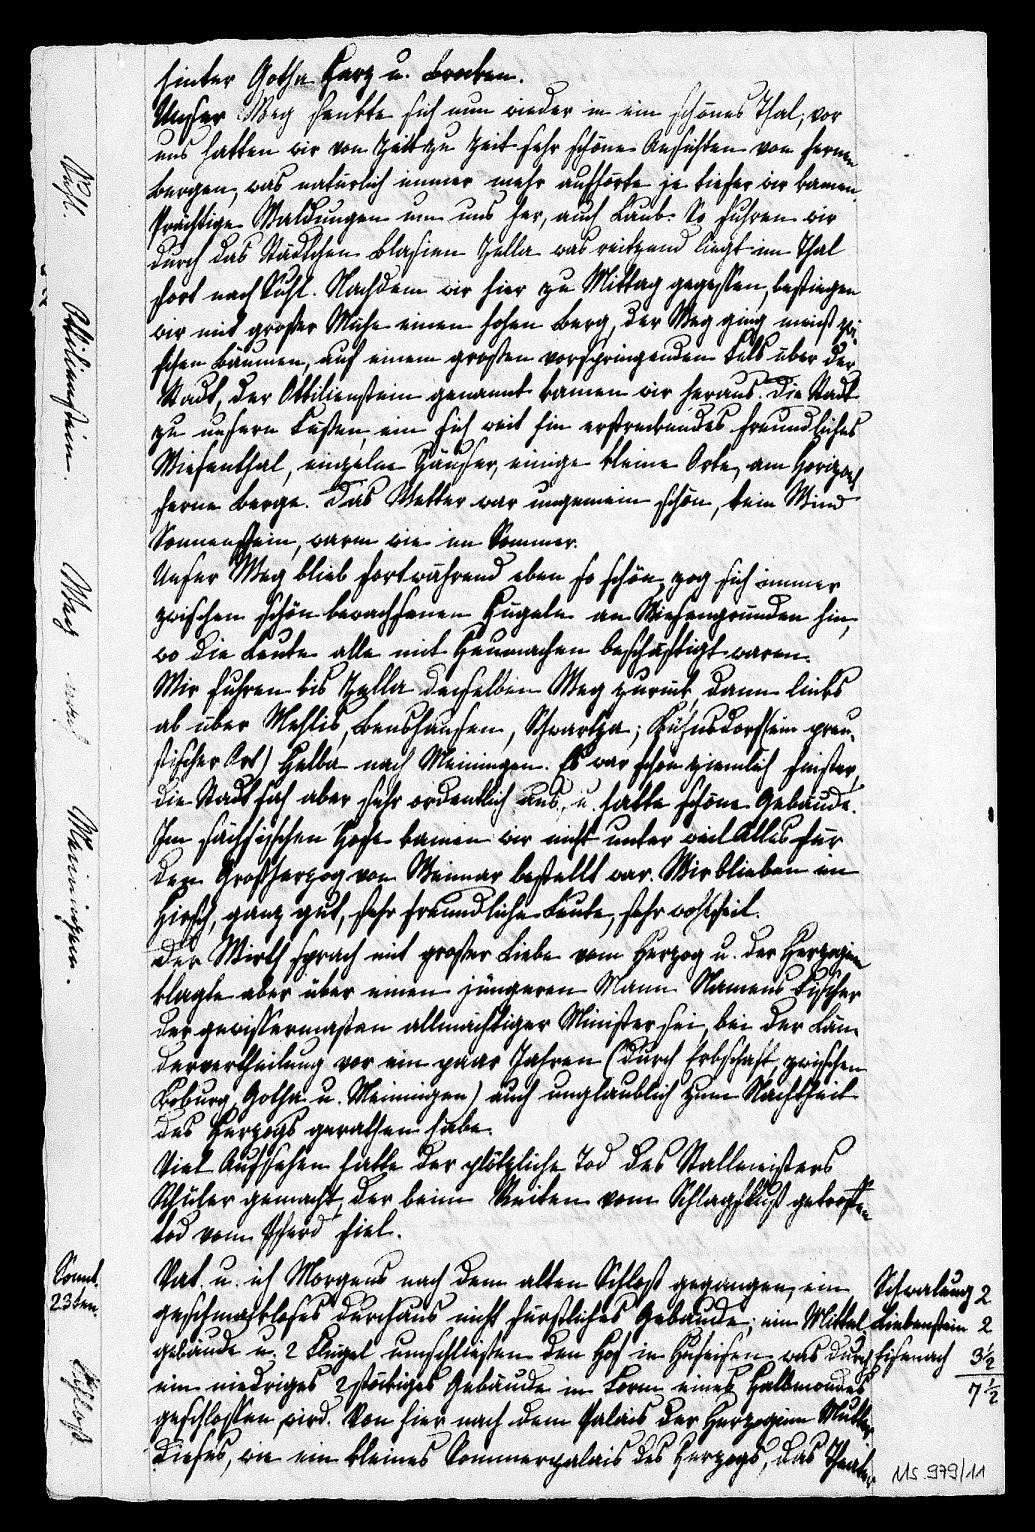 hinter Gotha Harz u. Brocken.
Unser Weg senkte sich nun wieder in ein schönes Thal, vor
uns hatten wir von Zeit zu Zeit sehr schöne Ansichten von fernen
Bergen, was natürlich immer mehr aufhörte je tiefer wir kamen.
Prächtige Waldungen um uns her, auch Laub. So fuhren wir
durch das Städtchen Blasien Zella was reitzend liegt im Thal
fort nach Suhl. Nachdem wir hier zu Mittag gegessen, bestiegen
wir mit großer Mühe einen hohen Berg, der Weg ging meist zwi-
schen Bäumen, auf einem großen vorspringenden Fels über der
Stadt, der Ottilienstein genannt kamen wir heraus. Die Stadt
zu unsern Füßen, ein sich weit hin erstreckendes freundliches
Wiesenthal, einzelne Häuser, einige kleine Orte, am Horizont
ferne Berge. Das Wetter war ungemein schön, kein Wind
Sonnenschein, warm wie im Sommer.
Unser Weg blieb fortwährend eben so schön, zog sich immer
zwischen schön bewachsenen Hügeln an Wiesengründen hin,
wo die Leute alle mit Heumachen beschäftigt waren.
Wir fuhren bis Zella denselben Weg zurück, dann links
ab über Mehlis, Benshausen, Schwartza, Kühndorf (ein preu-
sischer Ort) Helba nach Meiningen. Es war schon ziemlich finster,
die Stadt sah aber sehr ordentlich aus, u. hatte schöne Gebäude.
Im sächsischen Hofe kamen wir nicht unter weil Alles für
den Großherzog von Weimar bestellt war. Wir blieben im
Hirsch, ganz gut, sehr freundliche Leute, sehr wohlfeil.
Der Wirth sprach mit großer Liebe vom Herzog u. der Herzogin
klagte aber über einen jüngeren Mann Namens Fischer
der gewissermaßen allmächtiger Minister sei, bei der Län-
dervertheilung vor ein paar Jahren (durch Erbschaft, zwischen
Koburg, Gotha u. Meiningen) auch unglaublich zum Nachtheil
des Herzogs gerathen habe.
Viel Aufsehen hatte der plötzliche Tod des Stallmeisters
Schüler gemacht, der beim Reiten vom Schlagfluß getroffen
tod vom Pferd fiel.
Vat. u. ich Morgens nach dem alten Schloß gegangen, ein
geschmackloses durchaus nicht fürstliches Gebäude; ein Mittel
gebäude u. 2 Flügel umschließen den Hof in Hufeisen was durch
ein niedriges 2stöckiges Gebäude in Form eines Halbmondes
geschlossen wird. Von hier nach dem Palais der Herzoginn Mutter,
dieses, wie ein kleines Sommerpalais des Herzogs, das Theater
Suhl.
Ottilienstein.
Weg nach
Meiningen.
Sonnt.
23ten
Schloß.
Schwalung 2
Liebenstein 2
Eisenach 3½
7½
Ms. 979/11